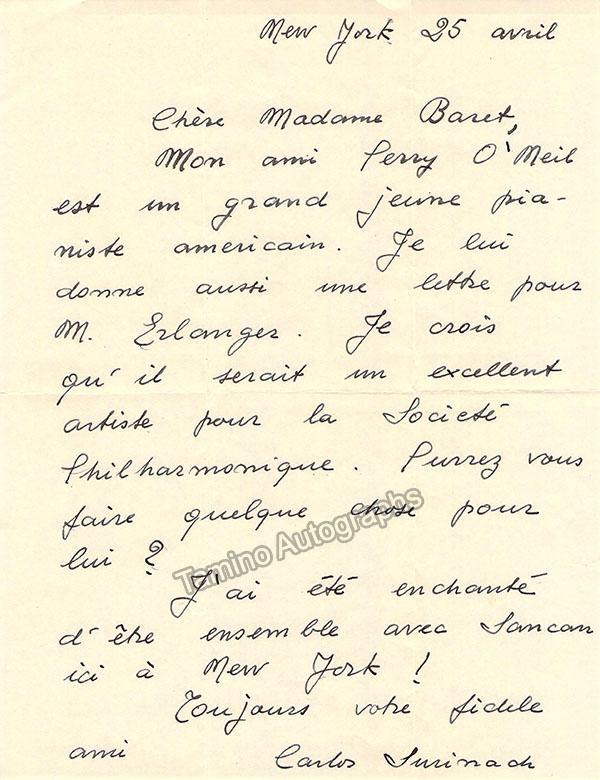 New York 25 avril
Chère Madame Baret,
Mon ami Perry O'Neil
est un grand jeune pia-
niste americain. Je lui
donne aussi une lettre pour
M. Erlanger. Je crois
qu'il serait un excellent
artiste pour la Societé
Philharmonique. Purrez vous
faire quelque chose pour
lui ?
Tamino Autographs
J'ai été enchanté
d'être ensemble avec Sancan
ici à New York !
Toujours votre fidele
ami Carlos Surinach